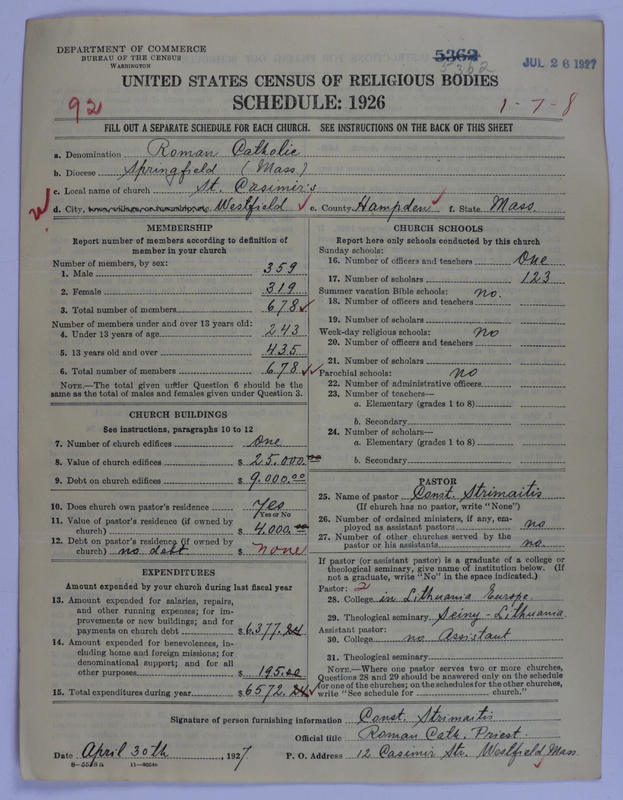 DEPARTMENT OF COMMERCE
BUREAU OF THE CENSUS
WASHINGTON
5362
5362
JUL 26 1927
UNITED STATES CENSUS OF RELIGIOUS BODIES
92
SCHEDULE: 1926
1-7-8
FILL OUT A SEPARATE SCHEDULE FOR EACH CHURCH. SEE INSTRUCTIONS ON THE BACK OF THIS SHEET
a. Denomination Roman Catholic
b. Diocese Springfield (Mass)
c. Local name of church St. Casimir's
d. City, town, village, or township, etc. Westfield e. County Hampden f. State Mass.
MEMBERSHIP
Report number of members according to definition of
member in your church
Number of members, by sex:
1. Male 359
2. Female 319
3. Total number of members 678
Number of members under and over 13 years old:
4. Under 13 years of age 243
5. 13 years old and over 435
6. Total number of members 678
NOTE.—The total given under Question 6 should be the
same as the total of males and females given under Question 3.
CHURCH BUILDINGS
See instructions, paragraphs 10 to 12
7. Number of church edifices one
8. Value of church edifices $ 25.000.00
9. Debt on church edifices $ 9.000.00
10. Does church own pastor's residence Yes
Yes or No
11. Value of pastor's residence (if owned by
church) $ 4.000.00
12. Debt on pastor's residence (if owned by
church) no debt $ None
EXPENDITURES
Amount expended by your church during last fiscal year
13. Amount expended for salaries, repairs,
and other running expenses; for im-
provements or new buildings; and for
payments on church debt $ 6.377.24
14. Amount expended for benevolences, in-
cluding home and foreign missions; for
denominational support; and for all
other purposes 195.00
15. Total expenditures during year $ 6572.24
CHURCH SCHOOLS
Report here only schools conducted by this church
Sunday schools:
16. Number of officers and teachers One
17. Number of scholars 123
Summer vacation Bible schools: no.
18. Number of officers and teachers
19. Number of scholars
Week-day religious schools: No
20. Number of officers and teachers
21. Number of scholars
Parochial schools: no
22. Number of administrative officers
23. Number of teachers—
a. Elementary (grades 1 to 8)
b. Secondary
24. Number of scholars—
a. Elementary (grades 1 to 8)
b. Secondary
PASTOR
25. Name of pastor Const. Strimaitis
(If church has no pastor, write "None")
26. Number of ordained ministers, if any, em-
ployed as assistant pastors no
27. Number of other churches served by the
pastor or his assistants no.
If pastor (or assistant pastor) is a graduate of a college or
theological seminary, give name of institution below. (If
not a graduate, write "No" in the space indicated.)
Pastor: 2
28. College in Lithuania Europe.
29. Theological seminary Seiny-Lithuania.
Assistant pastor:
30. College no Assistant
31. Theological seminary
NOTE.—Where one pastor serves two or more churches,
Questions 28 and 29 should be answered only on the schedule
for one of the churches; on the schedules for the other churches,
write "See schedule for church."
Signature of person furnishing information Const. Strimaitis
Official title Roman Cath. Priest.
Date April 30th, 1927. P. O. Address 12 Casimir Str. Westfield Mass